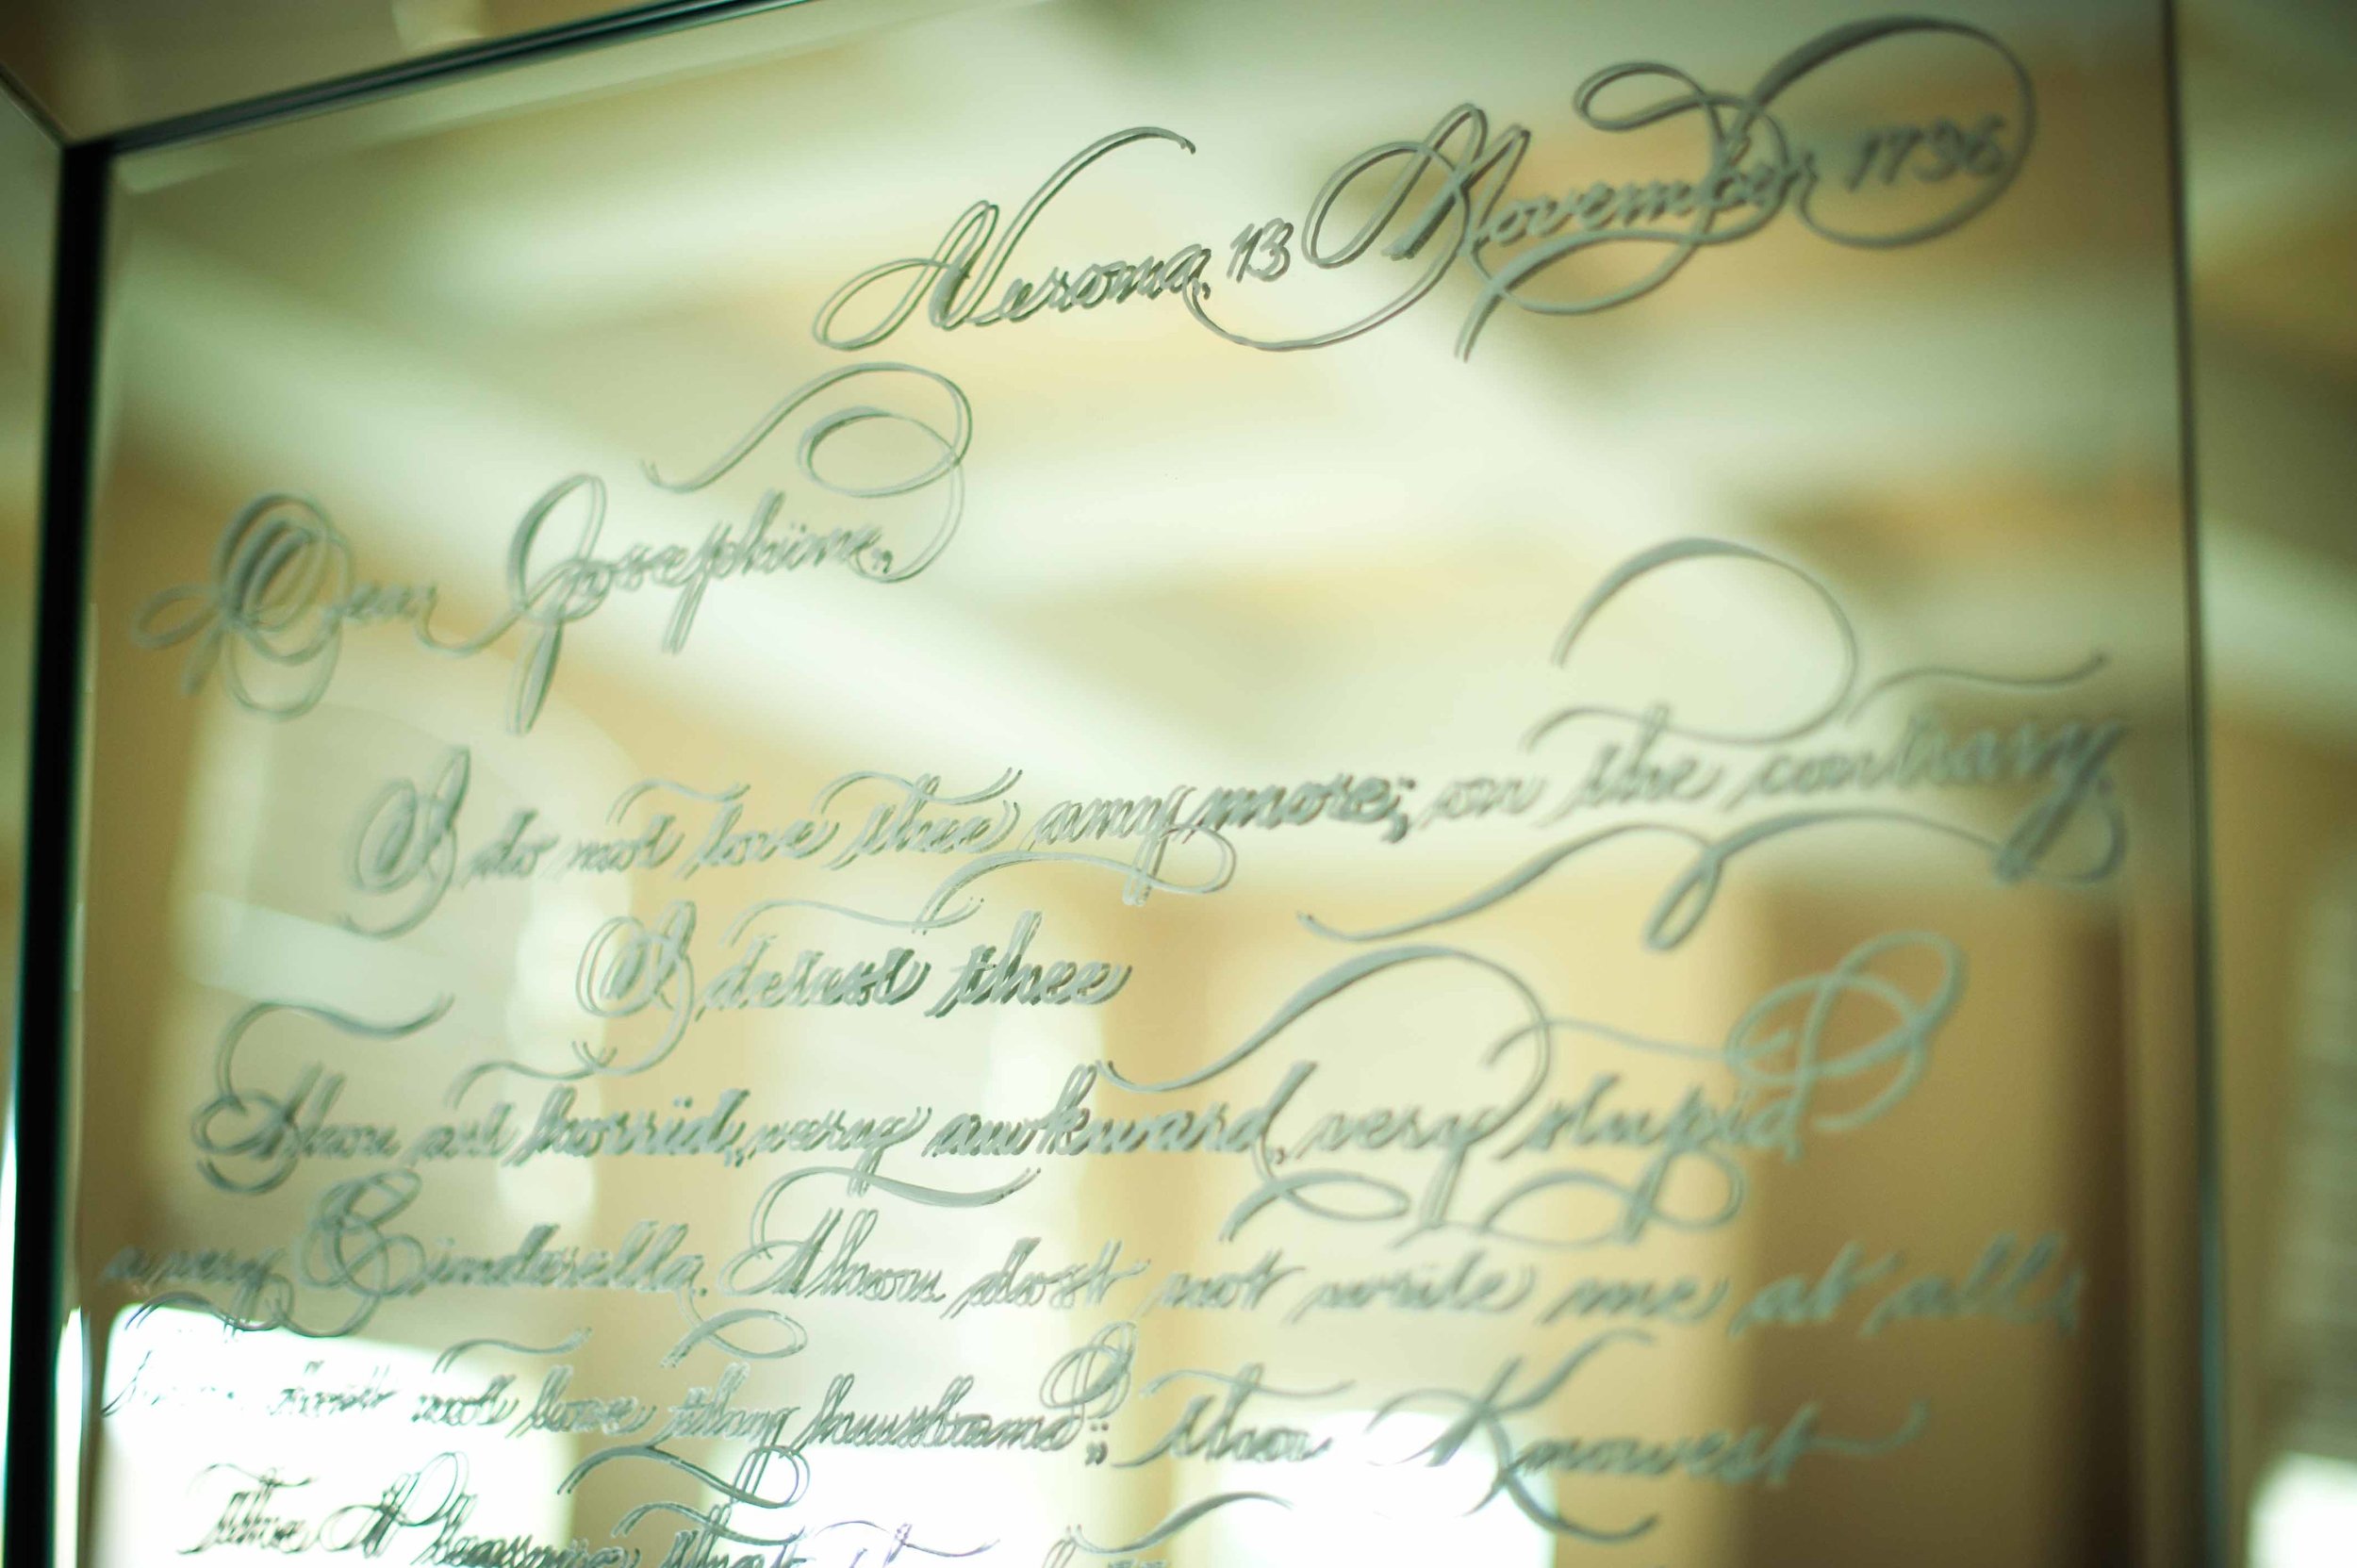 Verona, 13 November 1796
Dear Josephine,
I do not love thee anymore; on the contrary,
I detest thee
Thou art horrid, very awkward, very stupid
a very Cinderella. Thou dost not write me at all;
dost not love thy husband; thou Knowest
the Pleasure that